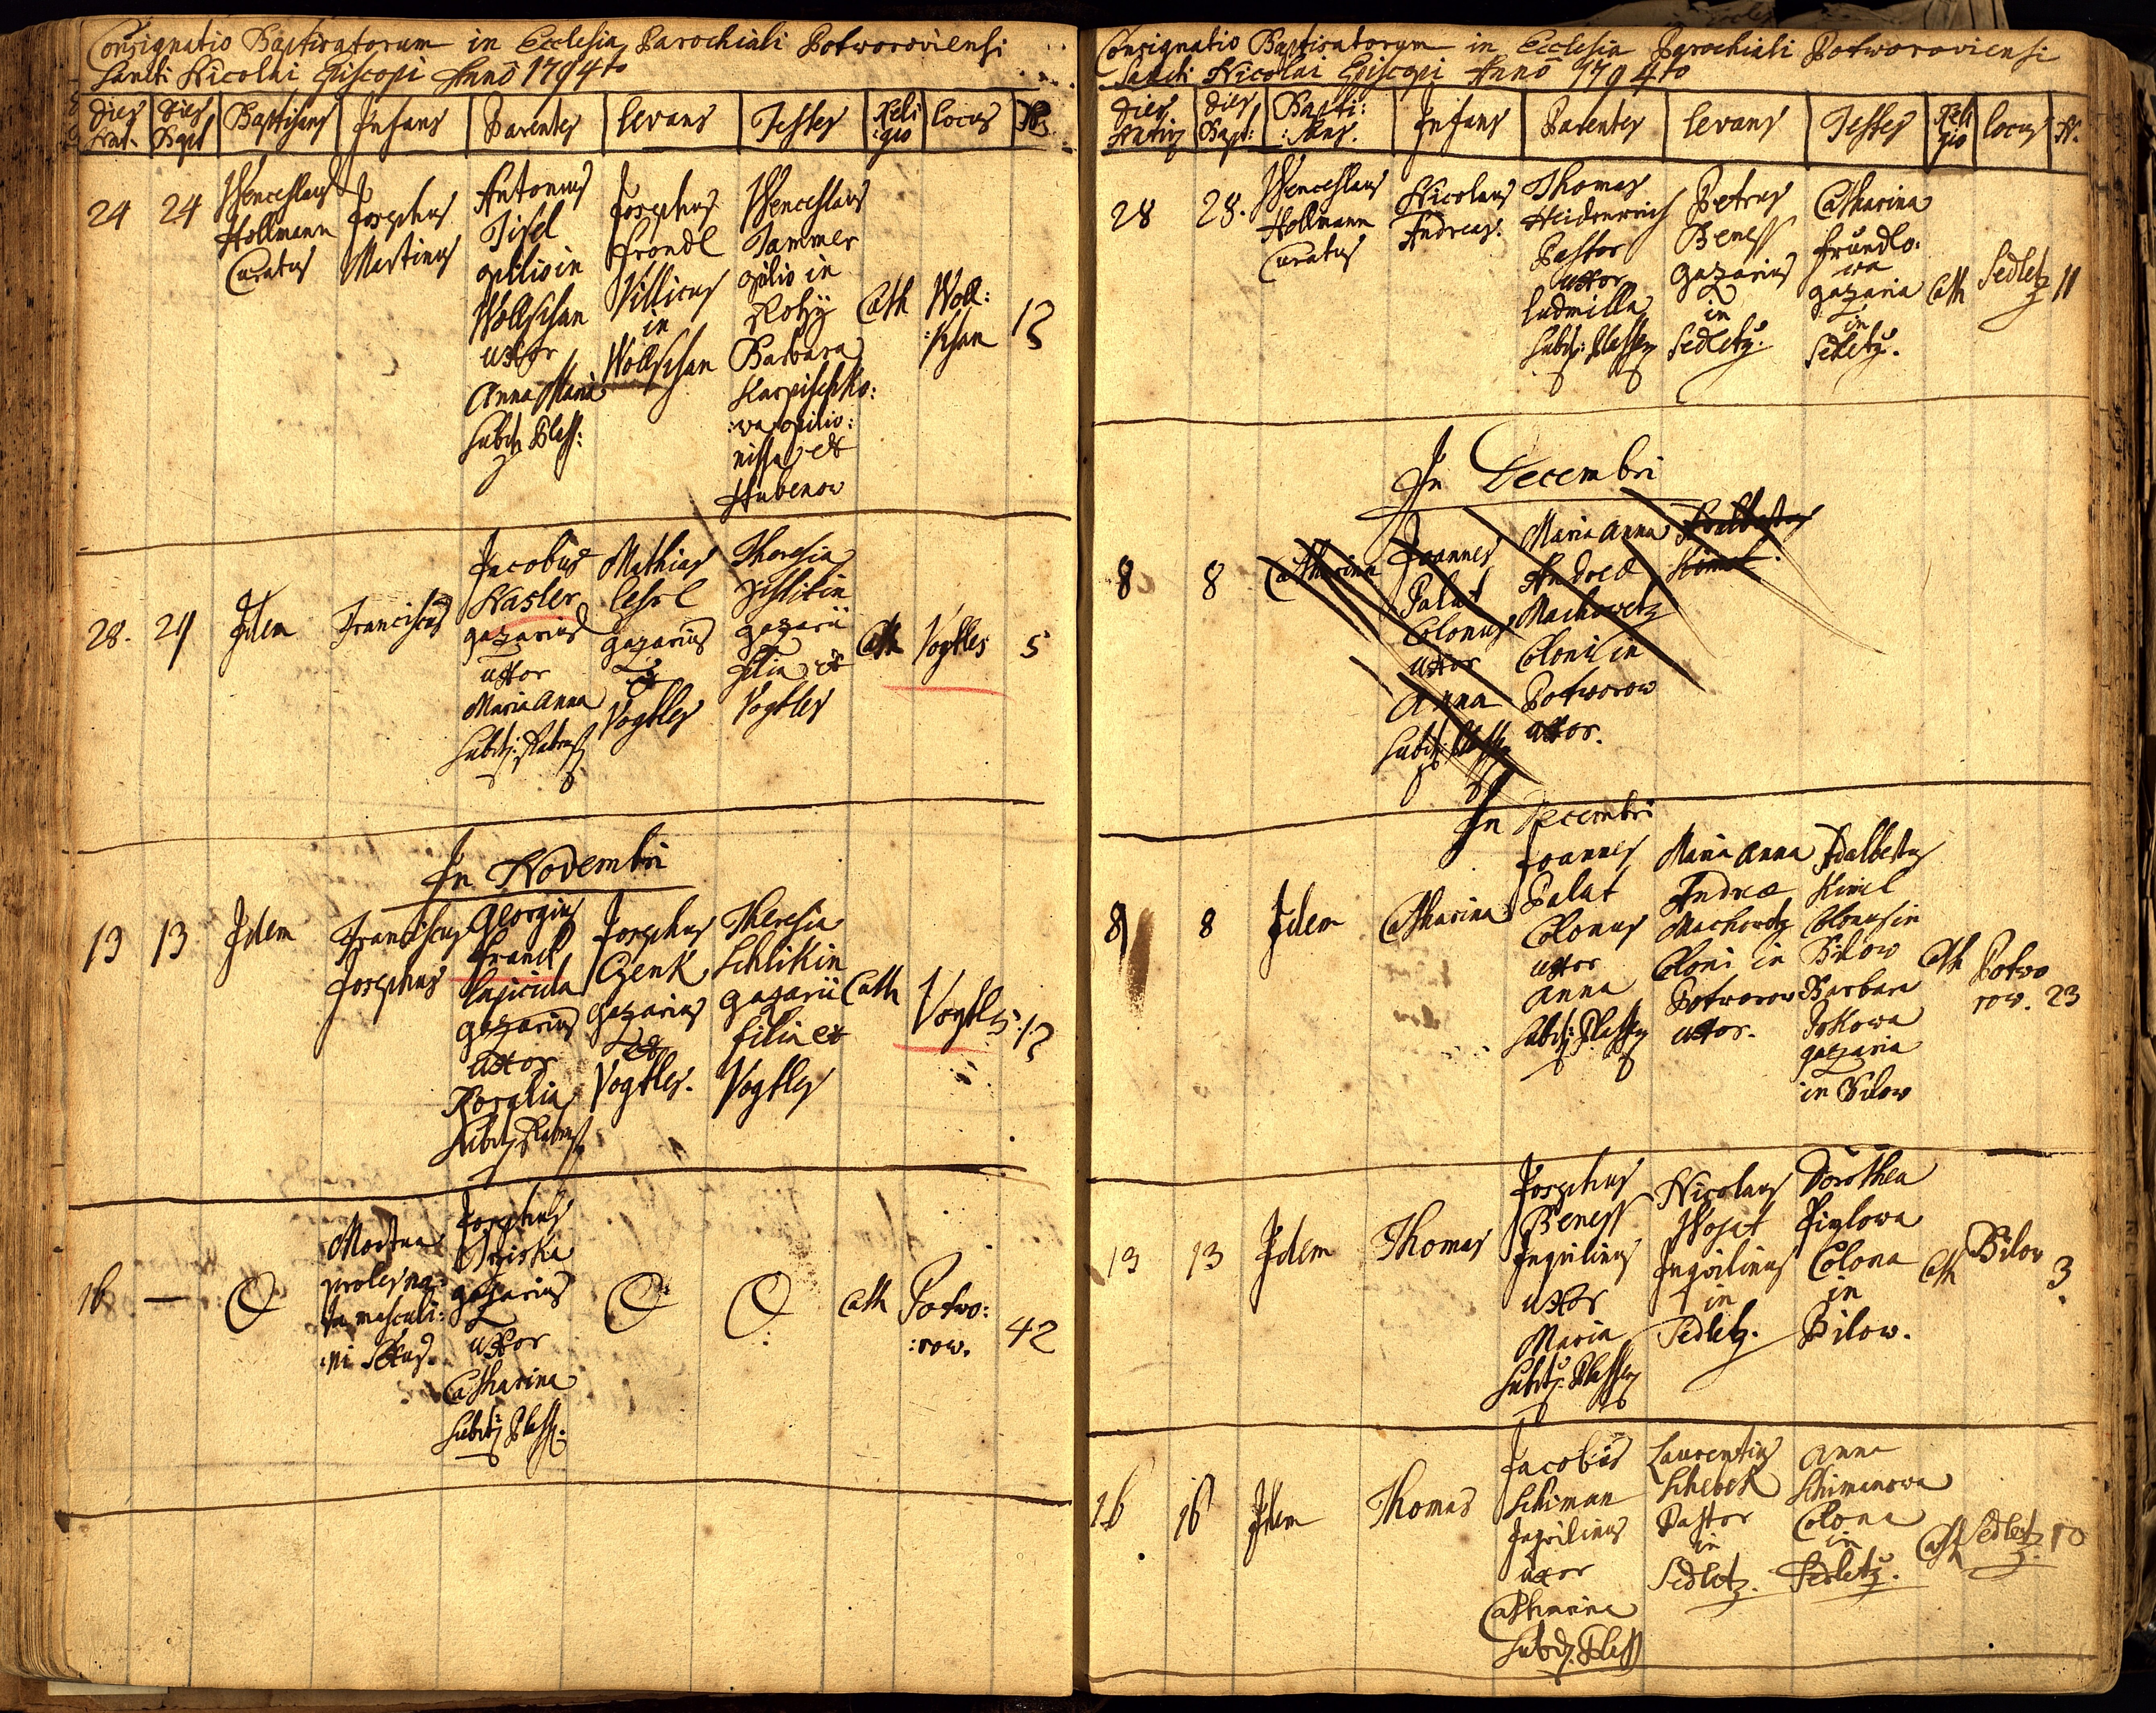 Consignatio Baptisatorum in Ecclesia Parochiali Potworoviensi
Sancti Nicolai Episcopi Anno 1794to
Dies Nat. | Dies Bapt | Baptisans | Infans | Parentes | Levans | Testes | Reli:gio | Locus | N.
24 24 Wenceslaus
Hollmann
Curatus
Josephus
Martinus
Antonius
Tisel
opilio in
Wollschan
uxor
Anna Maria
Subditi Plass:
Josephus
Frondl
Villicus
in
Wollschan
Wenceslaus
Tammer
opilio in
Barbara
Karpischko:
:wa opilio:
nissa ex
Hubenow
Cath
Woll:
:schan
12
28. 29 Idem Franciscus
Jacobus
Hasler
gazarius
uxor
Maria Anna
Mathias
gazarius
ex
Vogtles
Theresia
gazarii
filia ex
Vogtles
Cath Vogtles 5
In Novembri
13 13 Idem
Franciscus
Josephus
Georgius
Franck
lapicida
gazarius
uxor
Rosalia
Josephus
Czenk
gazarius
ex
Vogtles.
Theresia
Schlikin
gazarii
filia ex
Vogtles
Cath Vogtles. 12
16 —
Mortua
proles na:
ta masculi:
:ni sexus.
Josephus
gazarius
uxor
Catharina
Subditi Plass.
Cath
Potwo:
:row.
42
Consignatio Baptisatorum in Ecclesia Parochiali Potworoviensi
Sancti Nicolai Episcopi Anno 1794to
Dies Nativ | Dies Bapt: | Bapti:sans. | Infans | Parentes | Levans | Testes | Reli gio | Locus | N.
28 28. Wenceslaus
Hollmann
Curatus
Nicolaus
Andreas.
Thomas
Heidenreich
Pastor
uxor
Ludmilla
Subditi Plassen
Petrus
Beness
gazarius
in
Sedletz.
Catharina
Frundlo:
wa
gazaria
in
Sedletz.
Cath Sedletz 11
In Decembri
8 8 Catharina
Joannes
Palat
Colonus
uxor
Anna
Maria Anna
Andreae
Machowetz
Coloni in
Potworow
uxor.
Adalbertus
Kimel
In Decembri
8 8 Idem Catharina
Joannes
Palat
Colonus
uxor
Anna
Subditi Plassen
Maria Anna
Andreae
Machowetz
Coloni in
Potworow
uxor.
Adalbertus
Kimel
Colonus in
Bilow
Barbara
gazaria
in Bilow
Cath
Potwo
row. 23
13 13 Idem Thomas
Josephus
Beness
Inquilinus
uxor
Maria
Subditi Plassen
Nicolaus
Wojat
Inquilinus
in
Sedletz.
Dorothea
Colona
in
Bilow.
Cath Bilow 3.
16 16 Idem Thomas
Jacobus
Schiman
Inquilinus
uxor
Catharina
Subditi Plass
Laurentius
Schebek
Pastor
in
Sedletz.
Anna
Schimanowa
Colona
in
Sedletz.
Cath Sedletz. 10